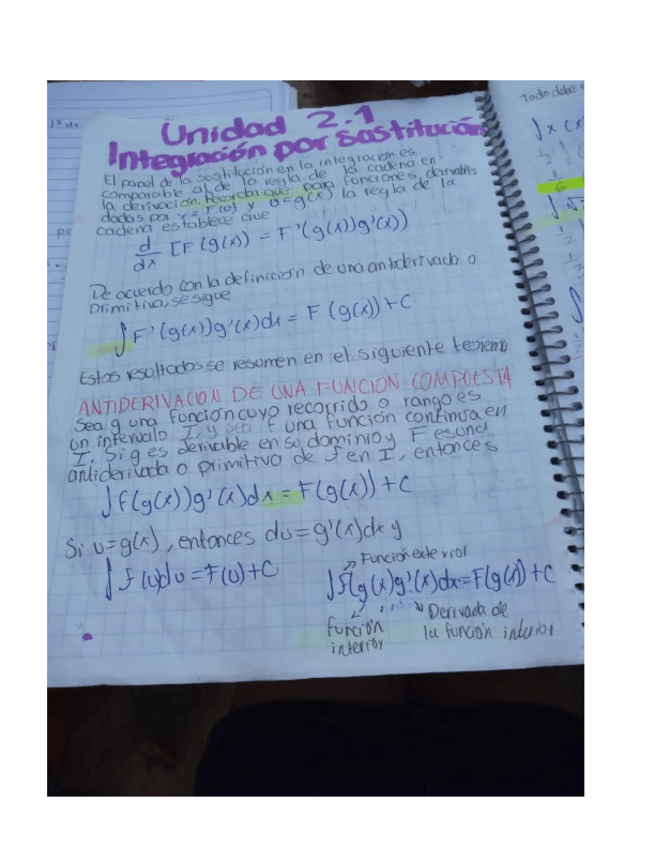 Unidad 2.1
Integración por Sustitución
El papel de la sustitución en la integración es
comparable al de la regla de la cadena en
la derivación. Recorba que para funciones derivables
dadas por y = F(u) y u=g(x) la regla de la
cadena establece que
d/dx [F(g(x)) = F'(g(x))g'(x))
De acuerdo con la definición de una antiderivada o
primitiva, se sigue
∫F'(g(x))g'(x)dx = F(g(x))+C
Estos resultados se resumen en el siguiente teorema
ANTIDERIVACION DE UNA FUNCION COMPUESTA
Sea g una función cuyo recorrido o rango es
un intervalo I, y sea f una función continua en
I. Si g es derivable en su dominio y F es una
antiderivada o primitiva de f en I, entonces
∫f(g(x))g'(x)dx = F(g(x))+C
Si u=g(x), entonces du=g'(x)dx y
∫f(u)du = F(u)+C
Función exterior
∫f(g(x)g'(x)dx=F(g(x))+C
función
interior
Derivada de
la función interior
Todo dabe
∫x(x